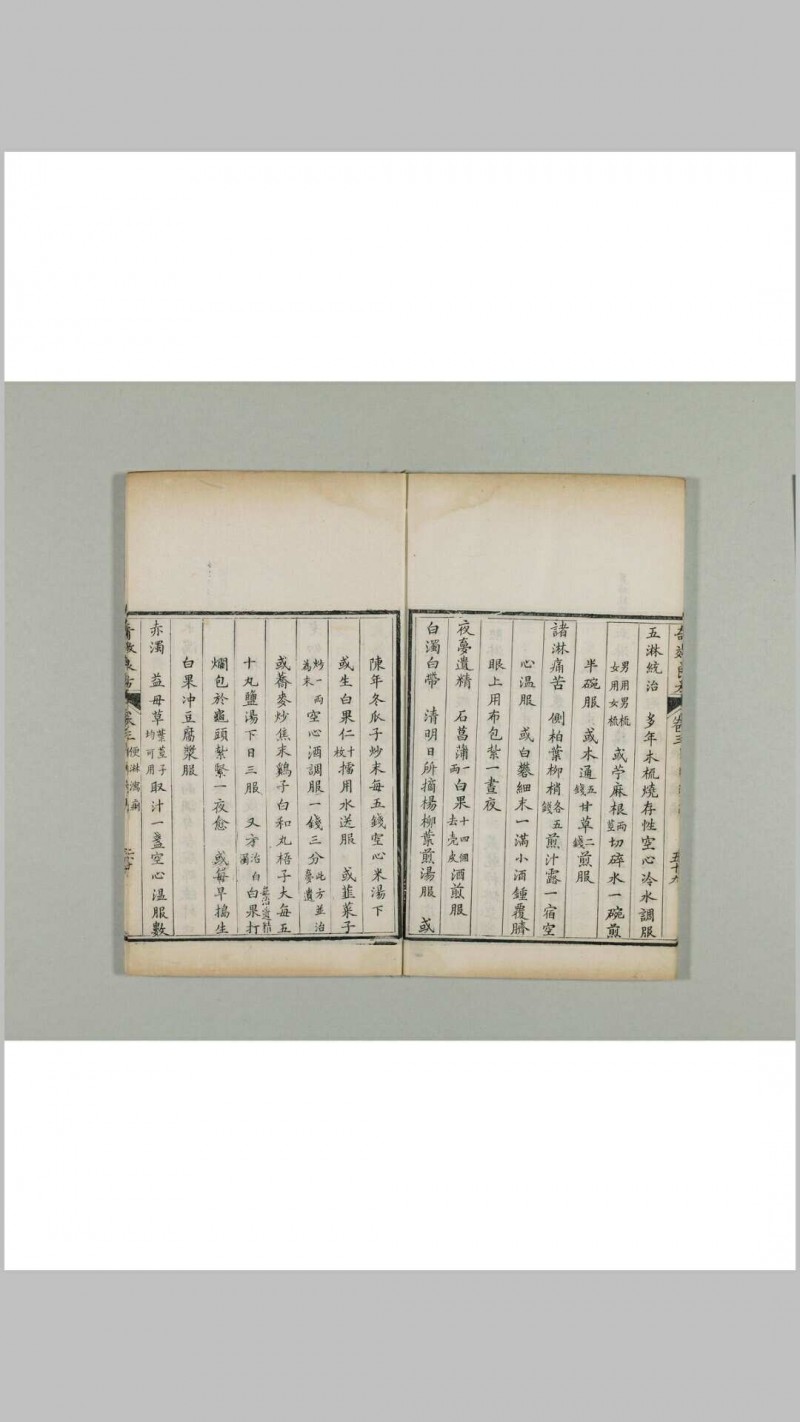 五淋統治　多年木梳燒存性空心冷水調服
男用男梳女用女梳　或苧麻根兩莖切碎水一碗煎
半碗服　或木通五錢甘草二錢煎服
諸淋痛苦　側柏葉柳梢各五錢煎汁露一宿空
心溫服　或白礬細末一滿小酒鍾覆臍
眼上用布包紮一晝夜
夜夢遺精　石菖蒲一兩白果十四個去壳皮酒煎服
白濁白帶　清明日所摘楊柳葉煎湯服　或
陳年冬瓜子炒末每五錢空心米湯下
或生白果仁十枚擂用水送服　或韮菜子
炒一兩為末空心酒調服一錢三分此方並治夢遺
或蕎麥炒焦末鷄子白和丸梧子大每五
十丸鹽湯下日三服　又方治白濁白果打
爛包於龜頭紮緊一夜愈　或每早搗生
白果冲豆腐漿服
赤濁　益母草葉莖子均可用取汁一盞空心溫服數